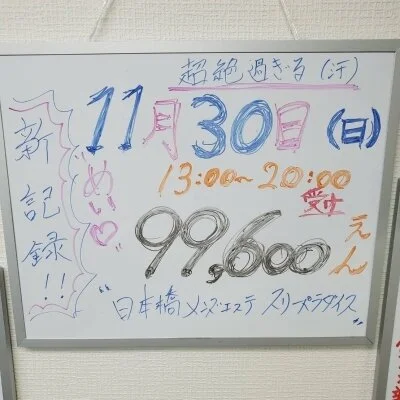 超絶過ぎる(汗)
11月30日(日)
新記録!!
"めい♡"
13:00~20:00
99,600えん
"日本橋メンズエステ スリーパラダイス"